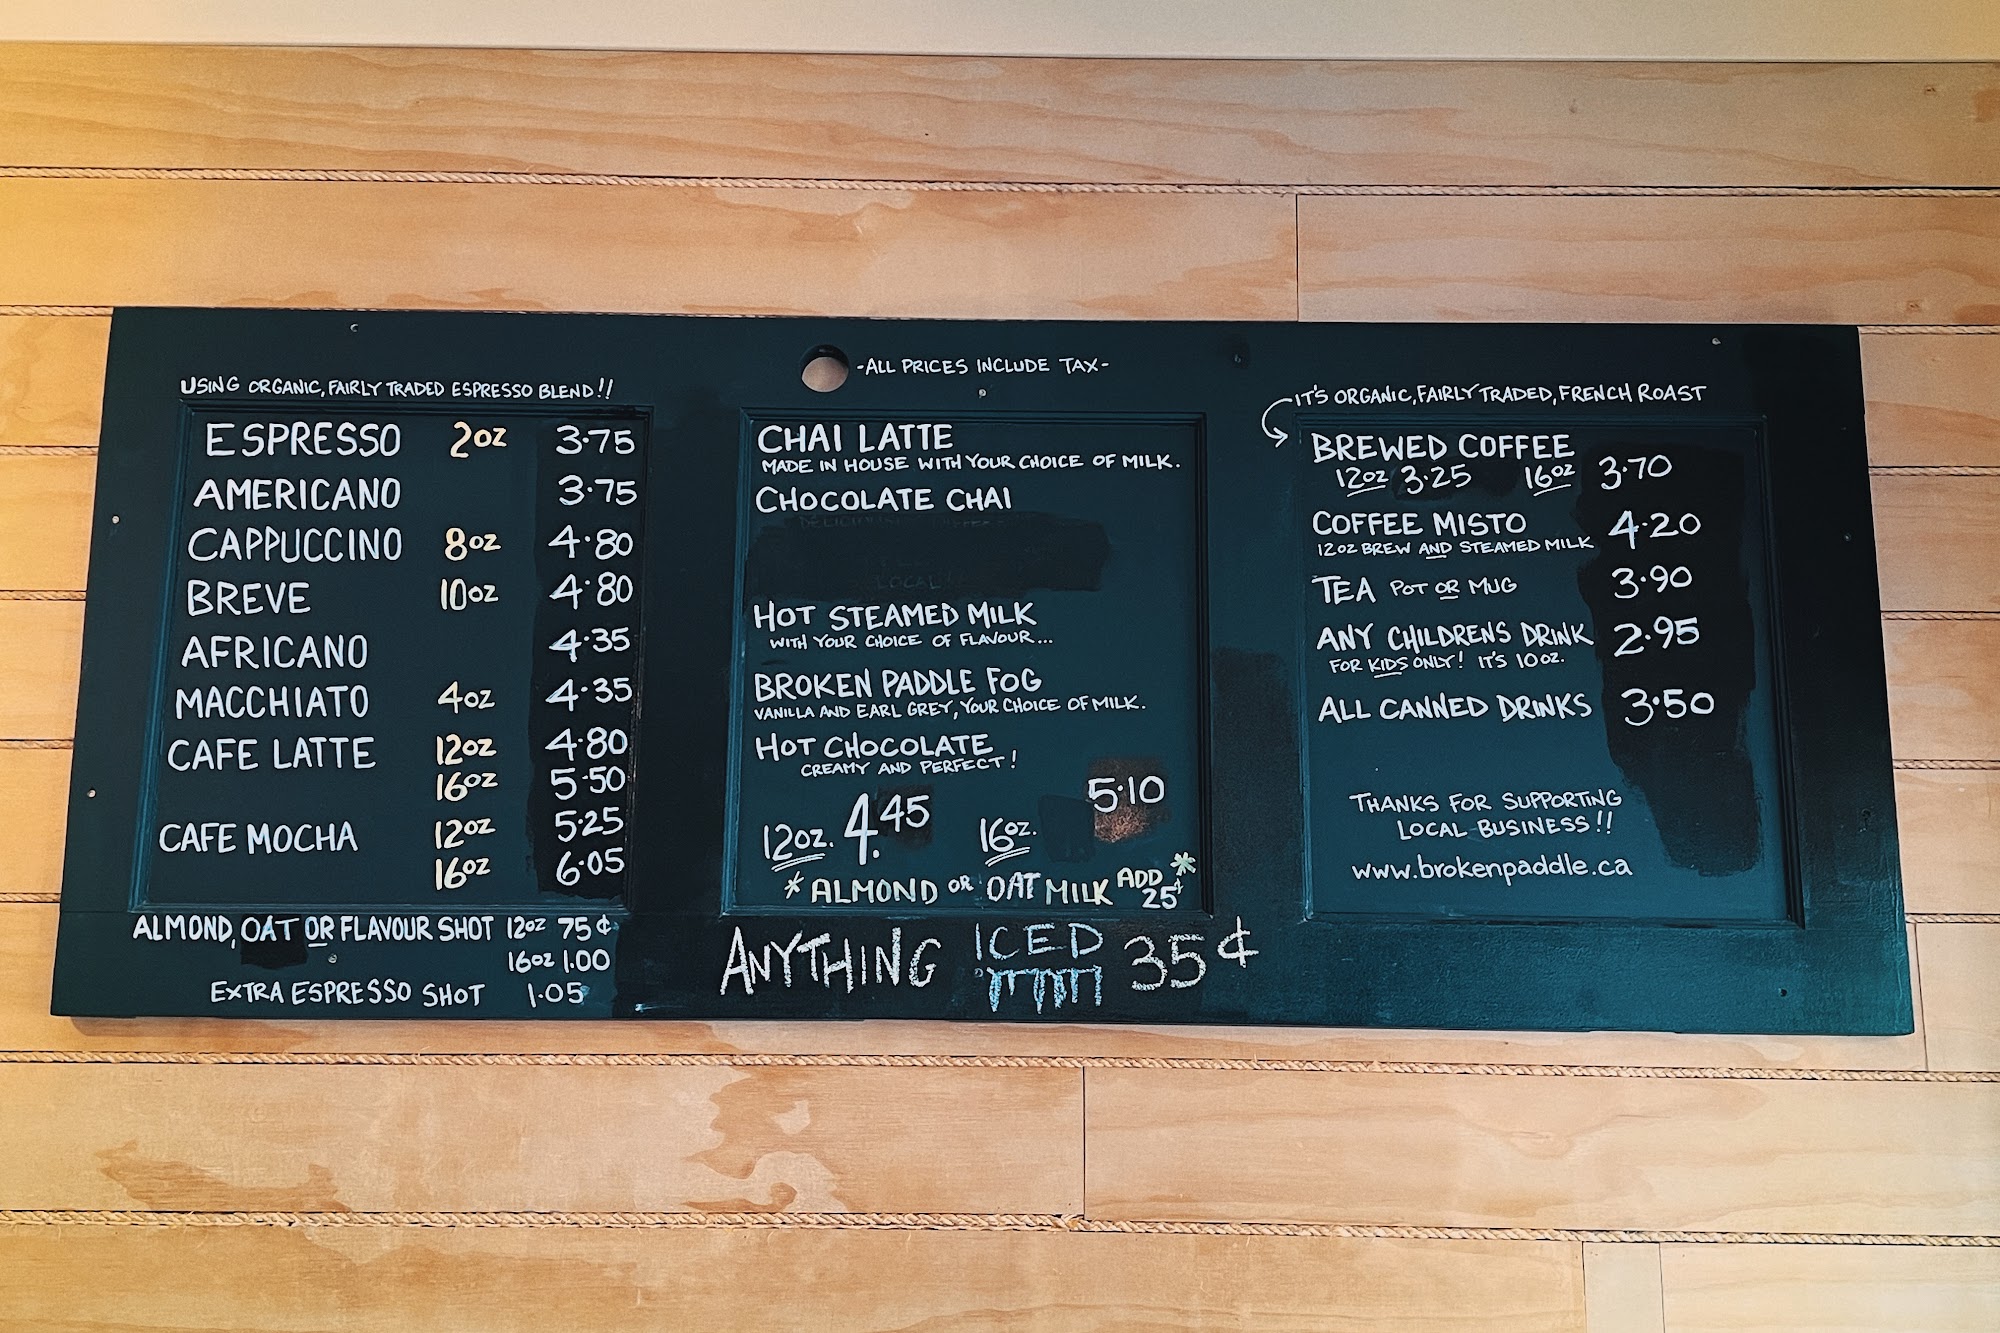 -ALL PRICES INCLUDE TAX-
USING ORGANIC, FAIRLY TRADED ESPRESSO BLEND!!
ESPRESSO 2oz 3.75
AMERICANO 3.75
CAPPUCCINO 8oz 4.80
BREVE 10oz 4.80
AFRICANO 4.35
MACCHIATO 4oz 4.35
CAFE LATTE 12oz 4.80
16oz 5.50
CAFE MOCHA 12oz 5.25
16oz 6.05
ALMOND, OAT OR FLAVOUR SHOT 12oz 75¢
16oz 1.00
EXTRA ESPRESSO SHOT 1.05
CHAI LATTE
MADE IN HOUSE WITH YOUR CHOICE OF MILK.
CHOCOLATE CHAI
LOCAL
HOT STEAMED MILK
WITH YOUR CHOICE OF FLAVOUR...
BROKEN PADDLE FOG
VANILLA AND EARL GREY, YOUR CHOICE OF MILK.
HOT CHOCOLATE
CREAMY AND PERFECT!
12oz. 4.45 16oz. 5.10
*ALMOND OR OAT MILK ADD 25¢*
ANYTHING ICED 35¢
IT'S ORGANIC, FAIRLY TRADED, FRENCH ROAST
BREWED COFFEE
12oz 3.25 16oz 3.70
COFFEE MISTO 4.20
12oz BREW AND STEAMED MILK
TEA POT OR MUG 3.90
ANY CHILDRENS DRINK 2.95
FOR KIDS ONLY! IT'S 10oz.
ALL CANNED DRINKS 3.50
THANKS FOR SUPPORTING
LOCAL BUSINESS!!
www.brokenpaddle.ca